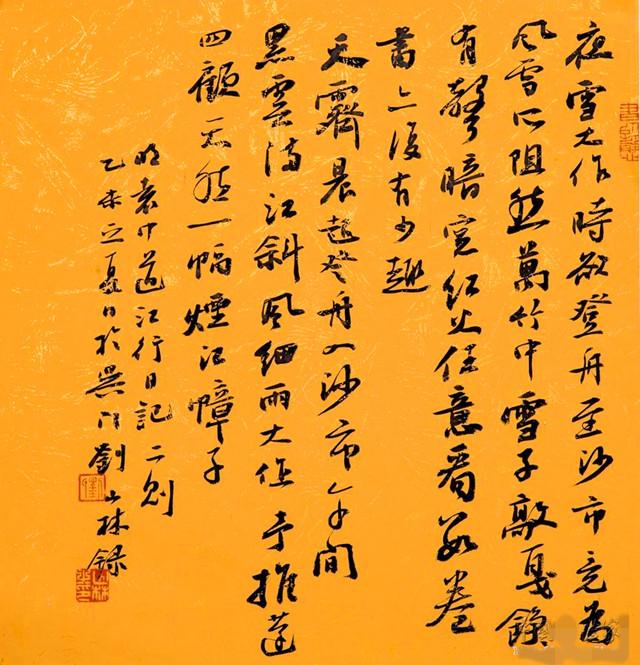 夜雪大作時欲登舟至沙市竟為
風雪所阻然萬竹中雪子敲戛錚
有聲暗窗紅火任意看數卷
書亦復有少趣
天霽晨起登舟入沙市午間
黑雲滿江斜風細雨大作予推蓬
四顧天然一幅煙江幛子
明袁中道江行日記二則
乙未立夏日於吳門劉山林錄